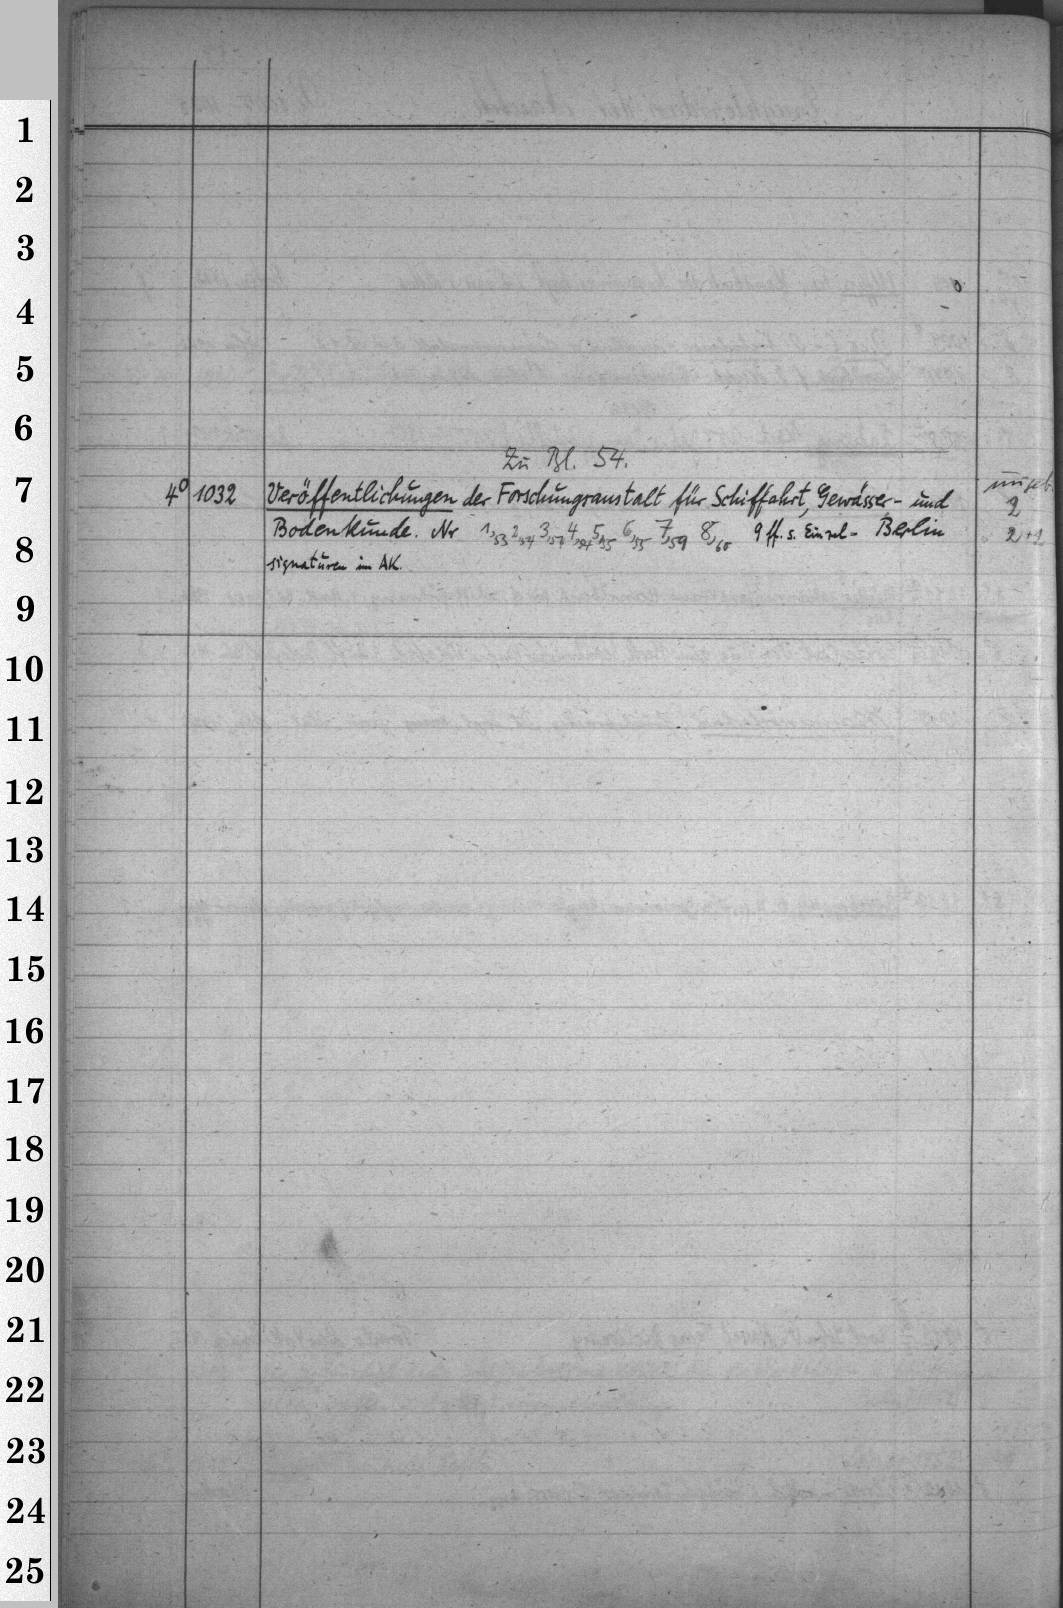 1
2
3
4
5
6
Zu Bl. 54.
7
4° 1032 Veröffentlichungen der Forschungsanstalt für Schiffahrt, Gewässer- und 2
Bodenkunde. Nr 1,53 2,54 3,54 4,54 5,55 6,55 7,59 8,60 9 ff. s. Einzel- Berlin 2+2
8
signaturen im AK.
9
10
11
12
13
14
15
16
17
18
19
20
21
22
23
24
25